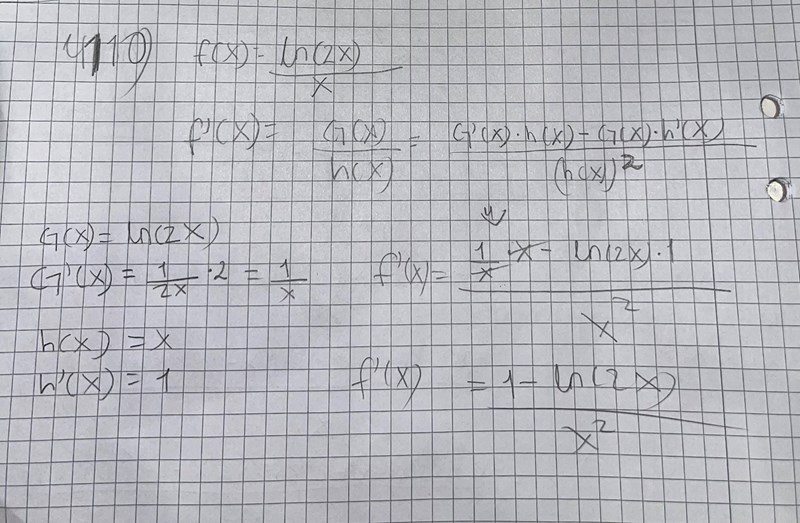 4110) f(x) = ln(2x) / x
f'(x) = G(x) / h(x) = G'(x)·h(x) - G(x)·h'(x) / (h(x))²
G(x) = ln(2x)
G'(x) = 1/2x · 2 = 1/x
h(x) = x
h'(x) = 1
f'(x) = 1/x · x - ln(2x)·1 / x²
f'(x) = 1 - ln(2x) / x²